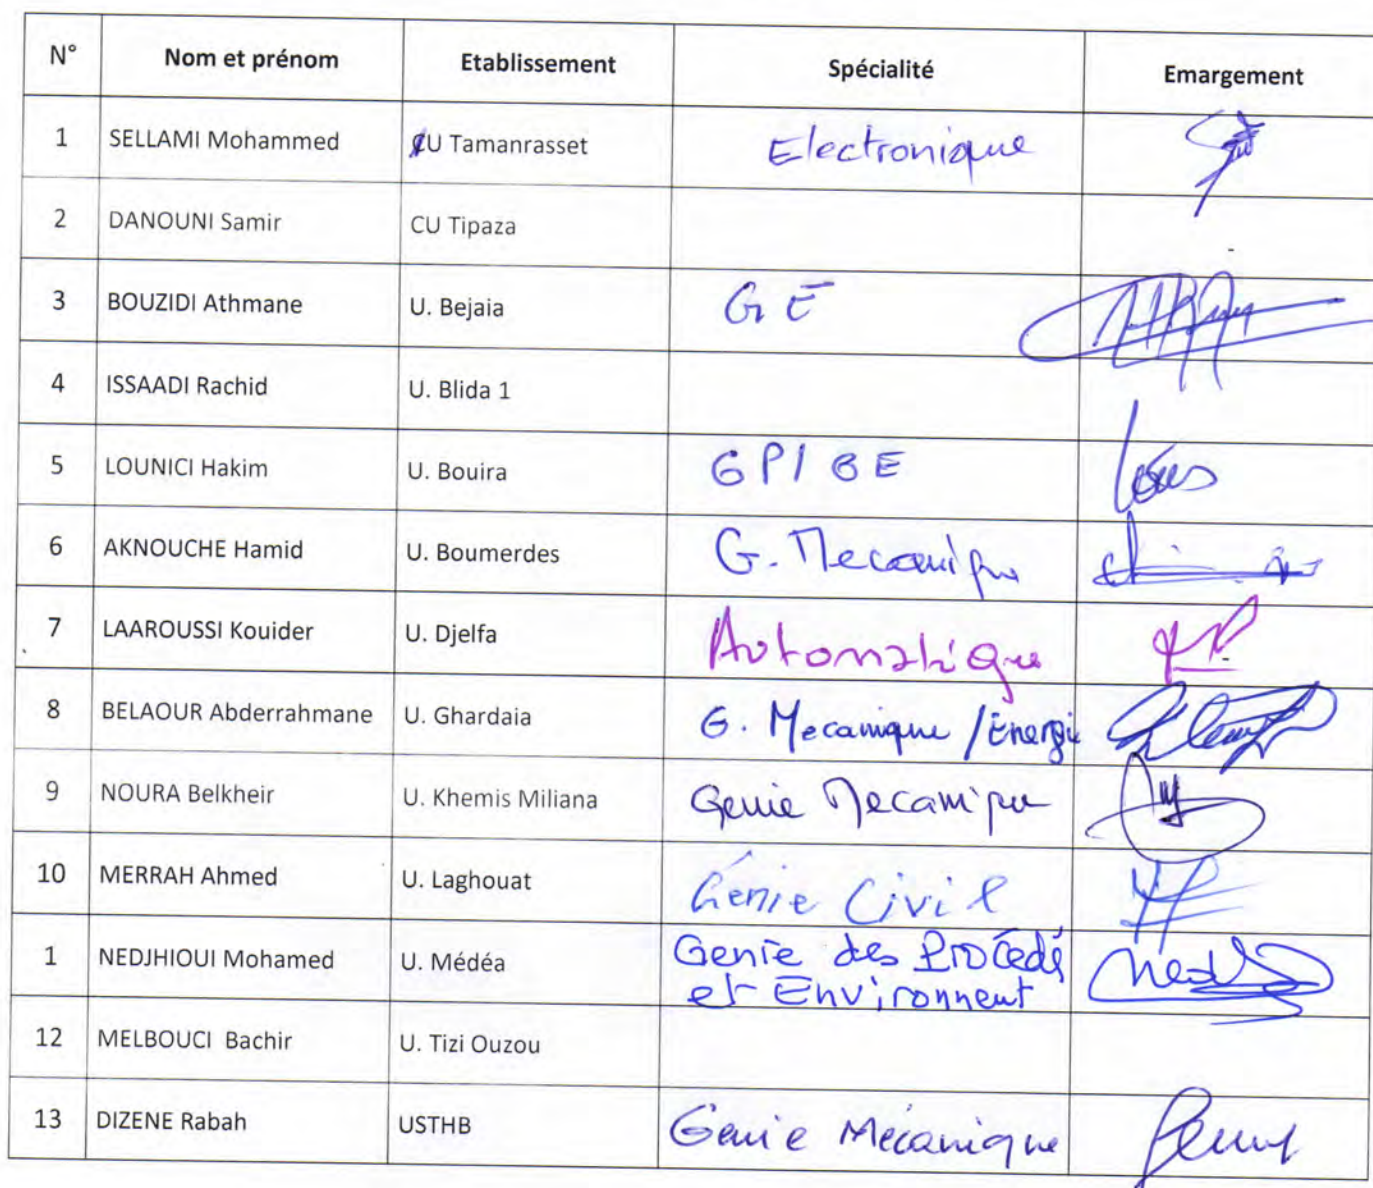 N° Nom et prénom Etablissement Spécialité Emargement
1 SELLAMI Mohammed CU Tamanrasset Electronique
2 DANOUNI Samir CU Tipaza
3 BOUZIDI Athmane U. Bejaia G E
4 ISSAADI Rachid U. Blida 1
5 LOUNICI Hakim U. Bouira GPIBE
6 AKNOUCHE Hamid U. Boumerdes G. Mecanique
7 LAAROUSSI Kouider U. Djelfa Automatique
8 BELAOUR Abderrahmane U. Ghardaia G. Mecanique / Energie
9 NOURA Belkheir U. Khemis Miliana Genie Mecanique
10 MERRAH Ahmed U. Laghouat Génie Civil
1 NEDJHIOUI Mohamed U. Médéa Genie des Procédés
et Environnent
12 MELBOUCI Bachir U. Tizi Ouzou
13 DIZENE Rabah USTHB Genie Mécanique